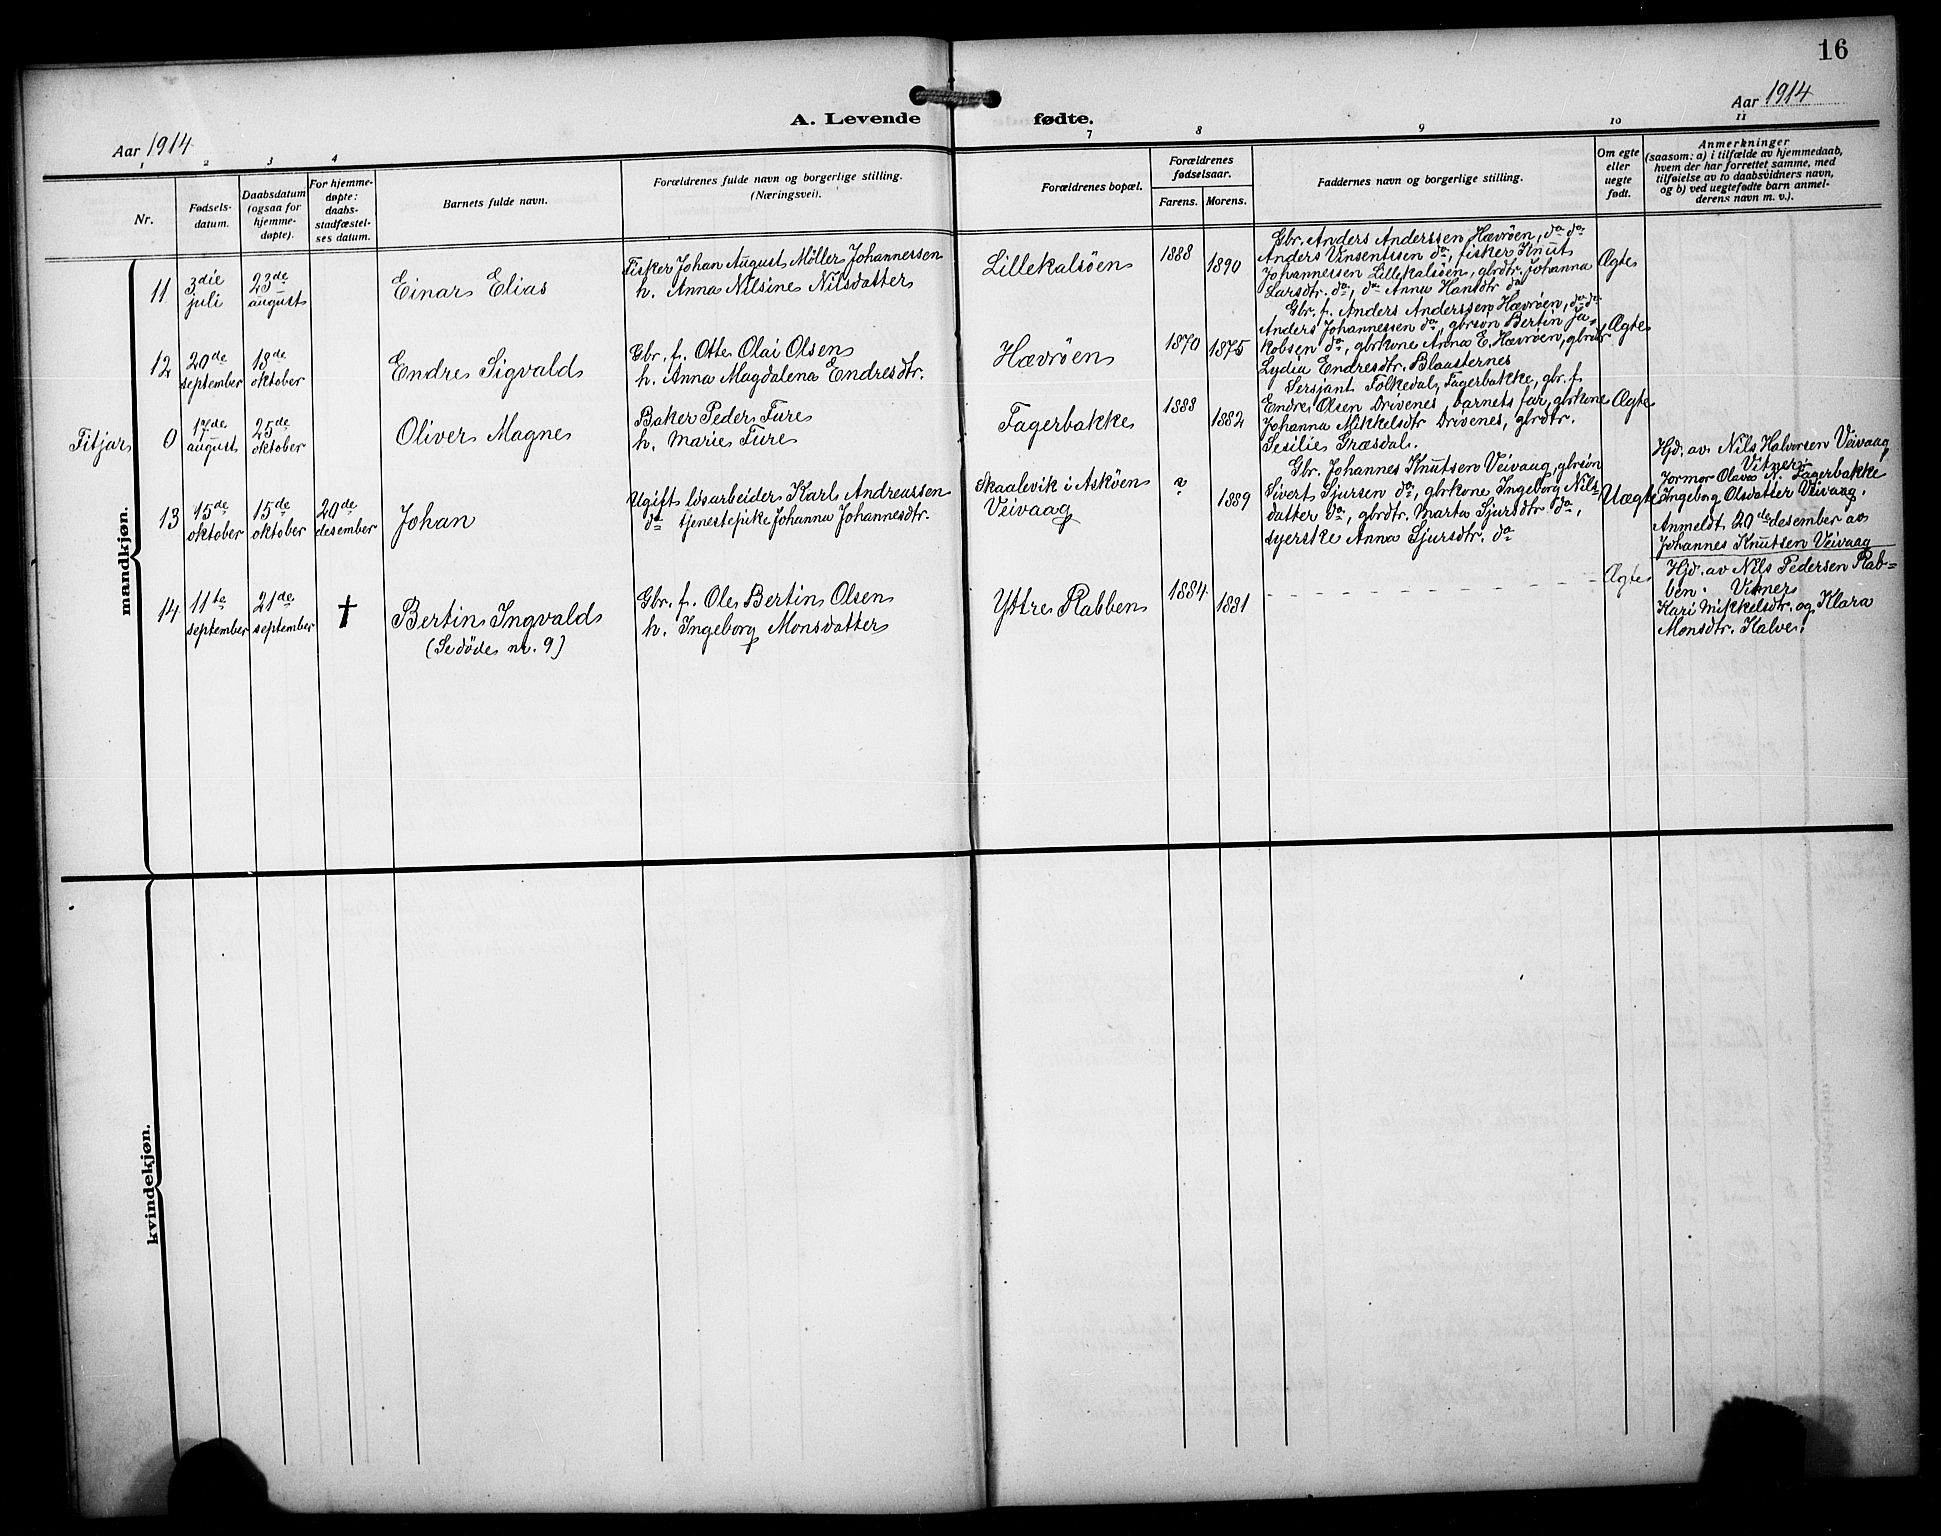 16
Aar 1914
A. Levende fødte.
Aar 1914
1 2 3 4 7 8 9 10 11
Nr.
Fødsels-
datum.
Daabsdatum
(ogsaa for
hjemme-
døpte).
For hjemme-
døpte:
daabs-
stadfæstel-
ses datum.
Barnets fulde navn.
Forældrenes fulde navn og borgerlige stilling.
(Næringsvei).
Forældrenes bopæl.
Forældrenes
fødselsaar.
Farens. Morens.
Faddernes navn og borgerlige stilling.
Om egte
eller
uegte
født.
Anmerkninger
(saasom: a) i tilfælde av hjemmedaab,
hvem der har forrettet samme, med
tilføielse av to daabsvidners navn,
og b) ved uegtefødte barn anmel-
derens navn m. v.).
mandkjøn.
11
3die
juli
23de
august
Einar Elias
Fisker Johan August Möller Johannessen
h. Anna Nilsine Nilsdatter
Lillekalsöen
1888
1890
Gbr. Anders Anderssen Hævröen, do do
Anders Vinsentssen do, fisker Knut
Johannessen Lillekalsöen, gbrdtr. Johanna
Larsdtr. do, do Anna Hansdtr do
Ægte
12
20de
september
18de
oktober
Endre Sigvald
Gbr. f. Otto Olai Olsen
h. Anna Magdalena Endresdtr.
Hævröen
1870
1875
Gbr. f. Anders Anderssen Hævröen, do do
Anders Johannessen do, gbrsön Bertin Ja-
kobsen do, gbrkone Anna E. Hævröen, gbrdtr
Lydia Endresdtr. Blaasternes
Ægte
Fitjar
0
17de
august
25de
oktober
Oliver Magne
Baker Peder Fure
h. Marie Fure
Fagerbakke
1888
1882
Sersjant Folkedal, Fagerbakke, gbr. f.
Endre Olsen Drivenes, barnets far, gbrkone
Johanna Mikkelsdtr Drivenes, gbrdtr.
Sesilie Græsdal.
Ægte
13
15de
oktober
15de
oktober
20de
desember
Johan
Ugift lösarbeider Karl Andreassen
do tjenestepike Johanna Johannesdtr.
Skaalevik i Asköen
Veivaag
?
1889
Gbr. Johannes Knutsen Veivaag, gbrsön
Sivert Sjursen do, gbrkone Ingeborg Nils-
datter do, gbrdtr. Marta Sjursdtr do,
syerske Anna Sjursdtr. do
Uægte
Hjd. av Nils Halvorsen Veivaag
Vitner
Jormor Olava N. Fagerbakke
Ingeborg Olsdatter Veivaag.
Anmeldt 20de desember av
Johannes Knutsen Veivaag
14
11te
september
21de
september
†
Bertin Ingvald
(Se döde nr. 9)
Gbr. f. Ole Bertin Olsen
h. Ingeborg Monsdatter
Yttre Rabben
1884
1881
Ægte
Hjd. av Nils Pedersen Rab-
ben. Vitner
Kari Mikkelsdtr. og Klara
Monsdtr. Kalve.
kvindekjøn.